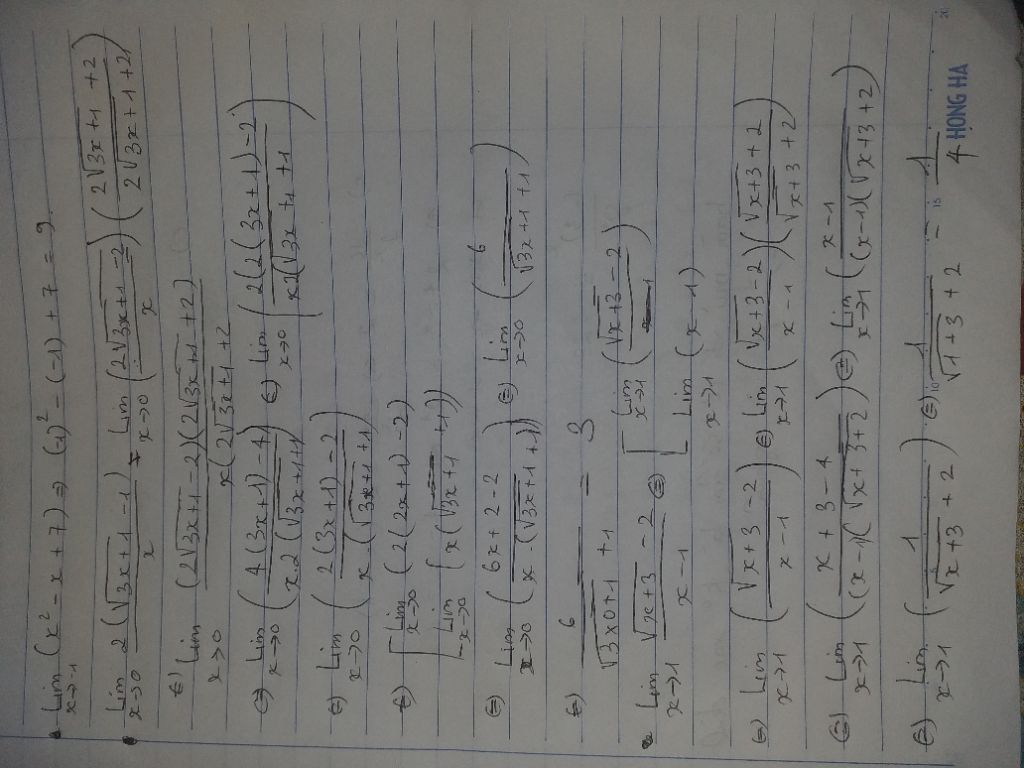 • Lim x→-1 (x² - x + 7) => (-1)² - (-1) + 7 = 9
• Lim x→0 2(√3x+1 - 1) / x = Lim x→0 ((2√3x+1 - 2) / x) (2√3x+1 + 2 / 2√3x+1 + 2)
(=) Lim x→0 (2√3x+1 - 2)(2√3x+1 + 2) / x(2√3x+1 + 2
(=) Lim x→0 (4(3x+1) - 4 / x.2(√3x+1+1)) (=) Lim x→0 (2(2(3x+1) - 2) / x2(√3x+1 + 1)
(=) Lim x→0 (2(3x+1) - 2 / x.(√3x+1 + 1))
(=) Lim x→0 (2(2x+1) - 2)
Lim x→0 (x(√3x+1 + 1))
(=) Lim x→0 (6x + 2 - 2 / x.(√3x+1 + 1)) (=) Lim x→0 (6 / √3x+1 + 1)
(=) 6 / √3x0+1 + 1 = 3
• Lim x→1 √x+3 - 2 / x-1 (=) Lim x→1 (√x+3 - 2)
Lim x→1 (x-1)
(=) Lim x→1 (√x+3 - 2 / x-1) (=) Lim x→1 (√x+3 - 2 / x-1) (√x+3 + 2 / √x+3 + 2)
(=) Lim x→1 (x + 3 - 4 / (x-1)(√x+3+2)) (=) Lim x→1 (x-1 / (x-1)(√x+3+2))
(=) Lim x→1 (1 / √x+3 + 2) (=) 1 / √1+3 + 2 = 1 / 4
HONG HA